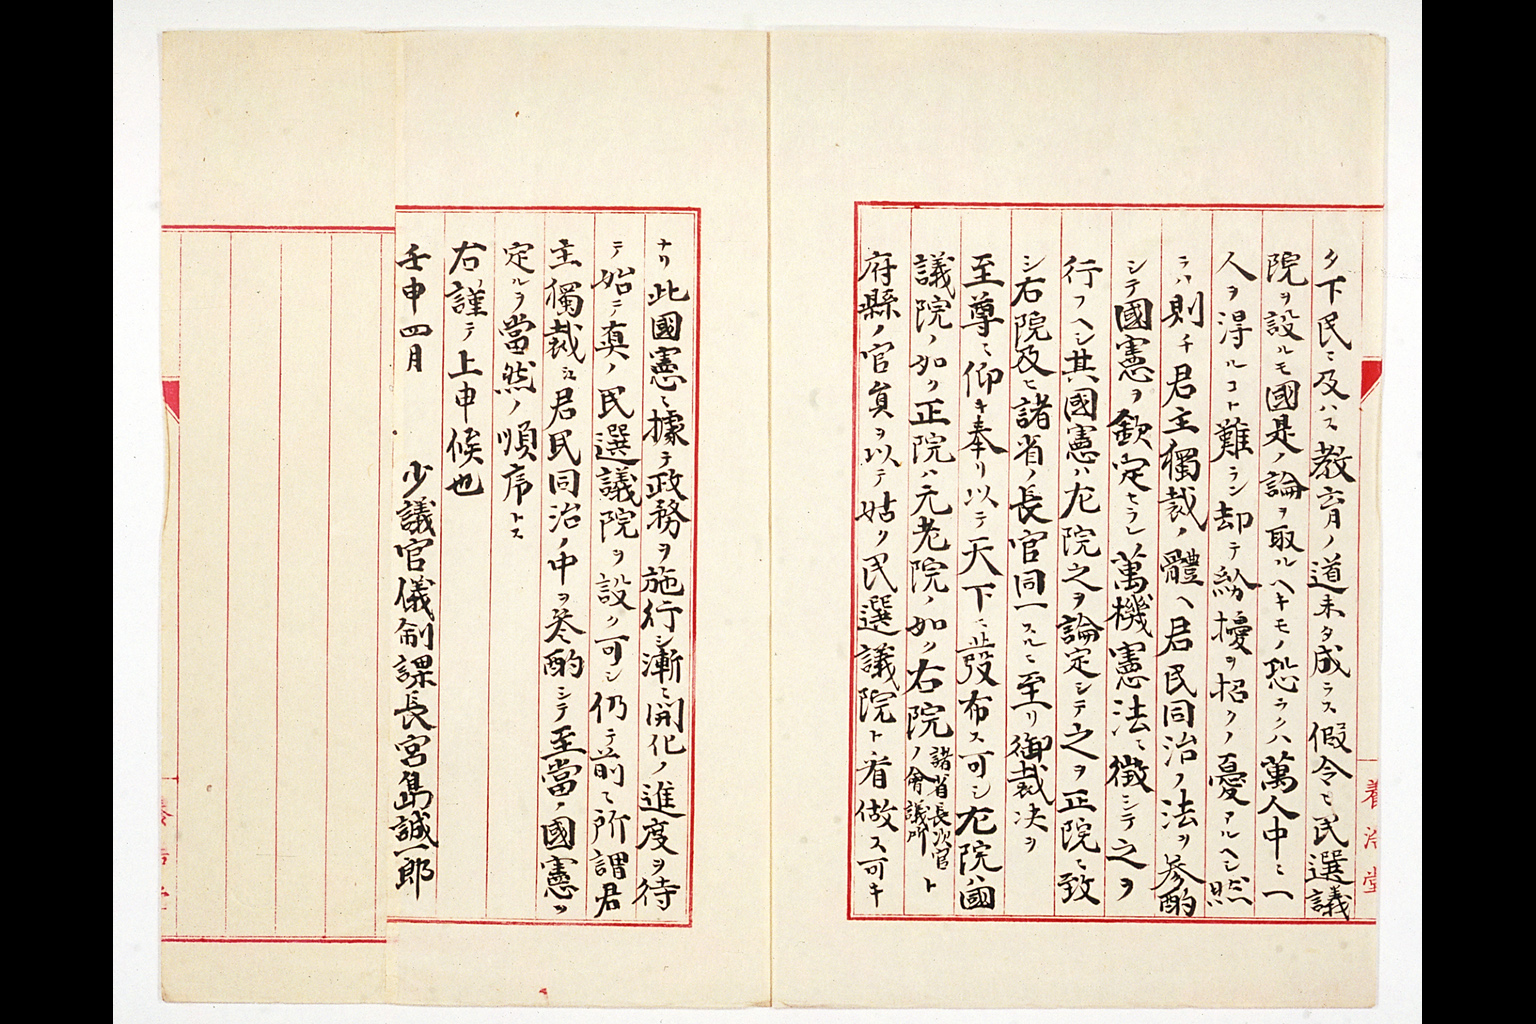 タ下民ニ及ハス教育ノ道未タ成ラス假令ヒ民選議
院ヲ設ルモ國是ノ論ヲ取ルヘキモノ恐ラクハ萬人中ニ一
人ヲ得ルコト難ラン却テ紛擾ヲ招クノ憂アルヘシ然
ラハ則チ君主獨裁ノ體ヘ君民同治ノ法ヲ參酌
シテ國憲ヲ欽定セラレ萬機憲法ニ徴シテ之ヲ
行フヘシ其國憲ハ左院之ヲ論定シテ之ヲ正院ニ致
シ右院及ヒ諸省ノ長官同一スルニ至リ御裁決ヲ
至尊ニ仰キ奉リ以テ天下ニ發布ス可シ左院ハ國
議院ノ如ク正院ハ元老院ノ如ク右院ノ諸省長次官會議所ト
府縣ノ官員ヲ以テ姑ク民選議院ト看做ス可キ
養浩堂
ナリ此國憲ニ據テ政務ヲ施行シ漸ニ開化ノ進度ヲ待
テ始テ真ノ民選議院ヲ設ク可シ仍テ前ニ所謂君
主獨裁ニ君民同治ノ中ヲ參酌シテ至當ノ國憲ヲ
定ルヲ當然ノ順序トス
右謹テ上申候也
壬申四月 少議官儀制課長宮島誠一郎